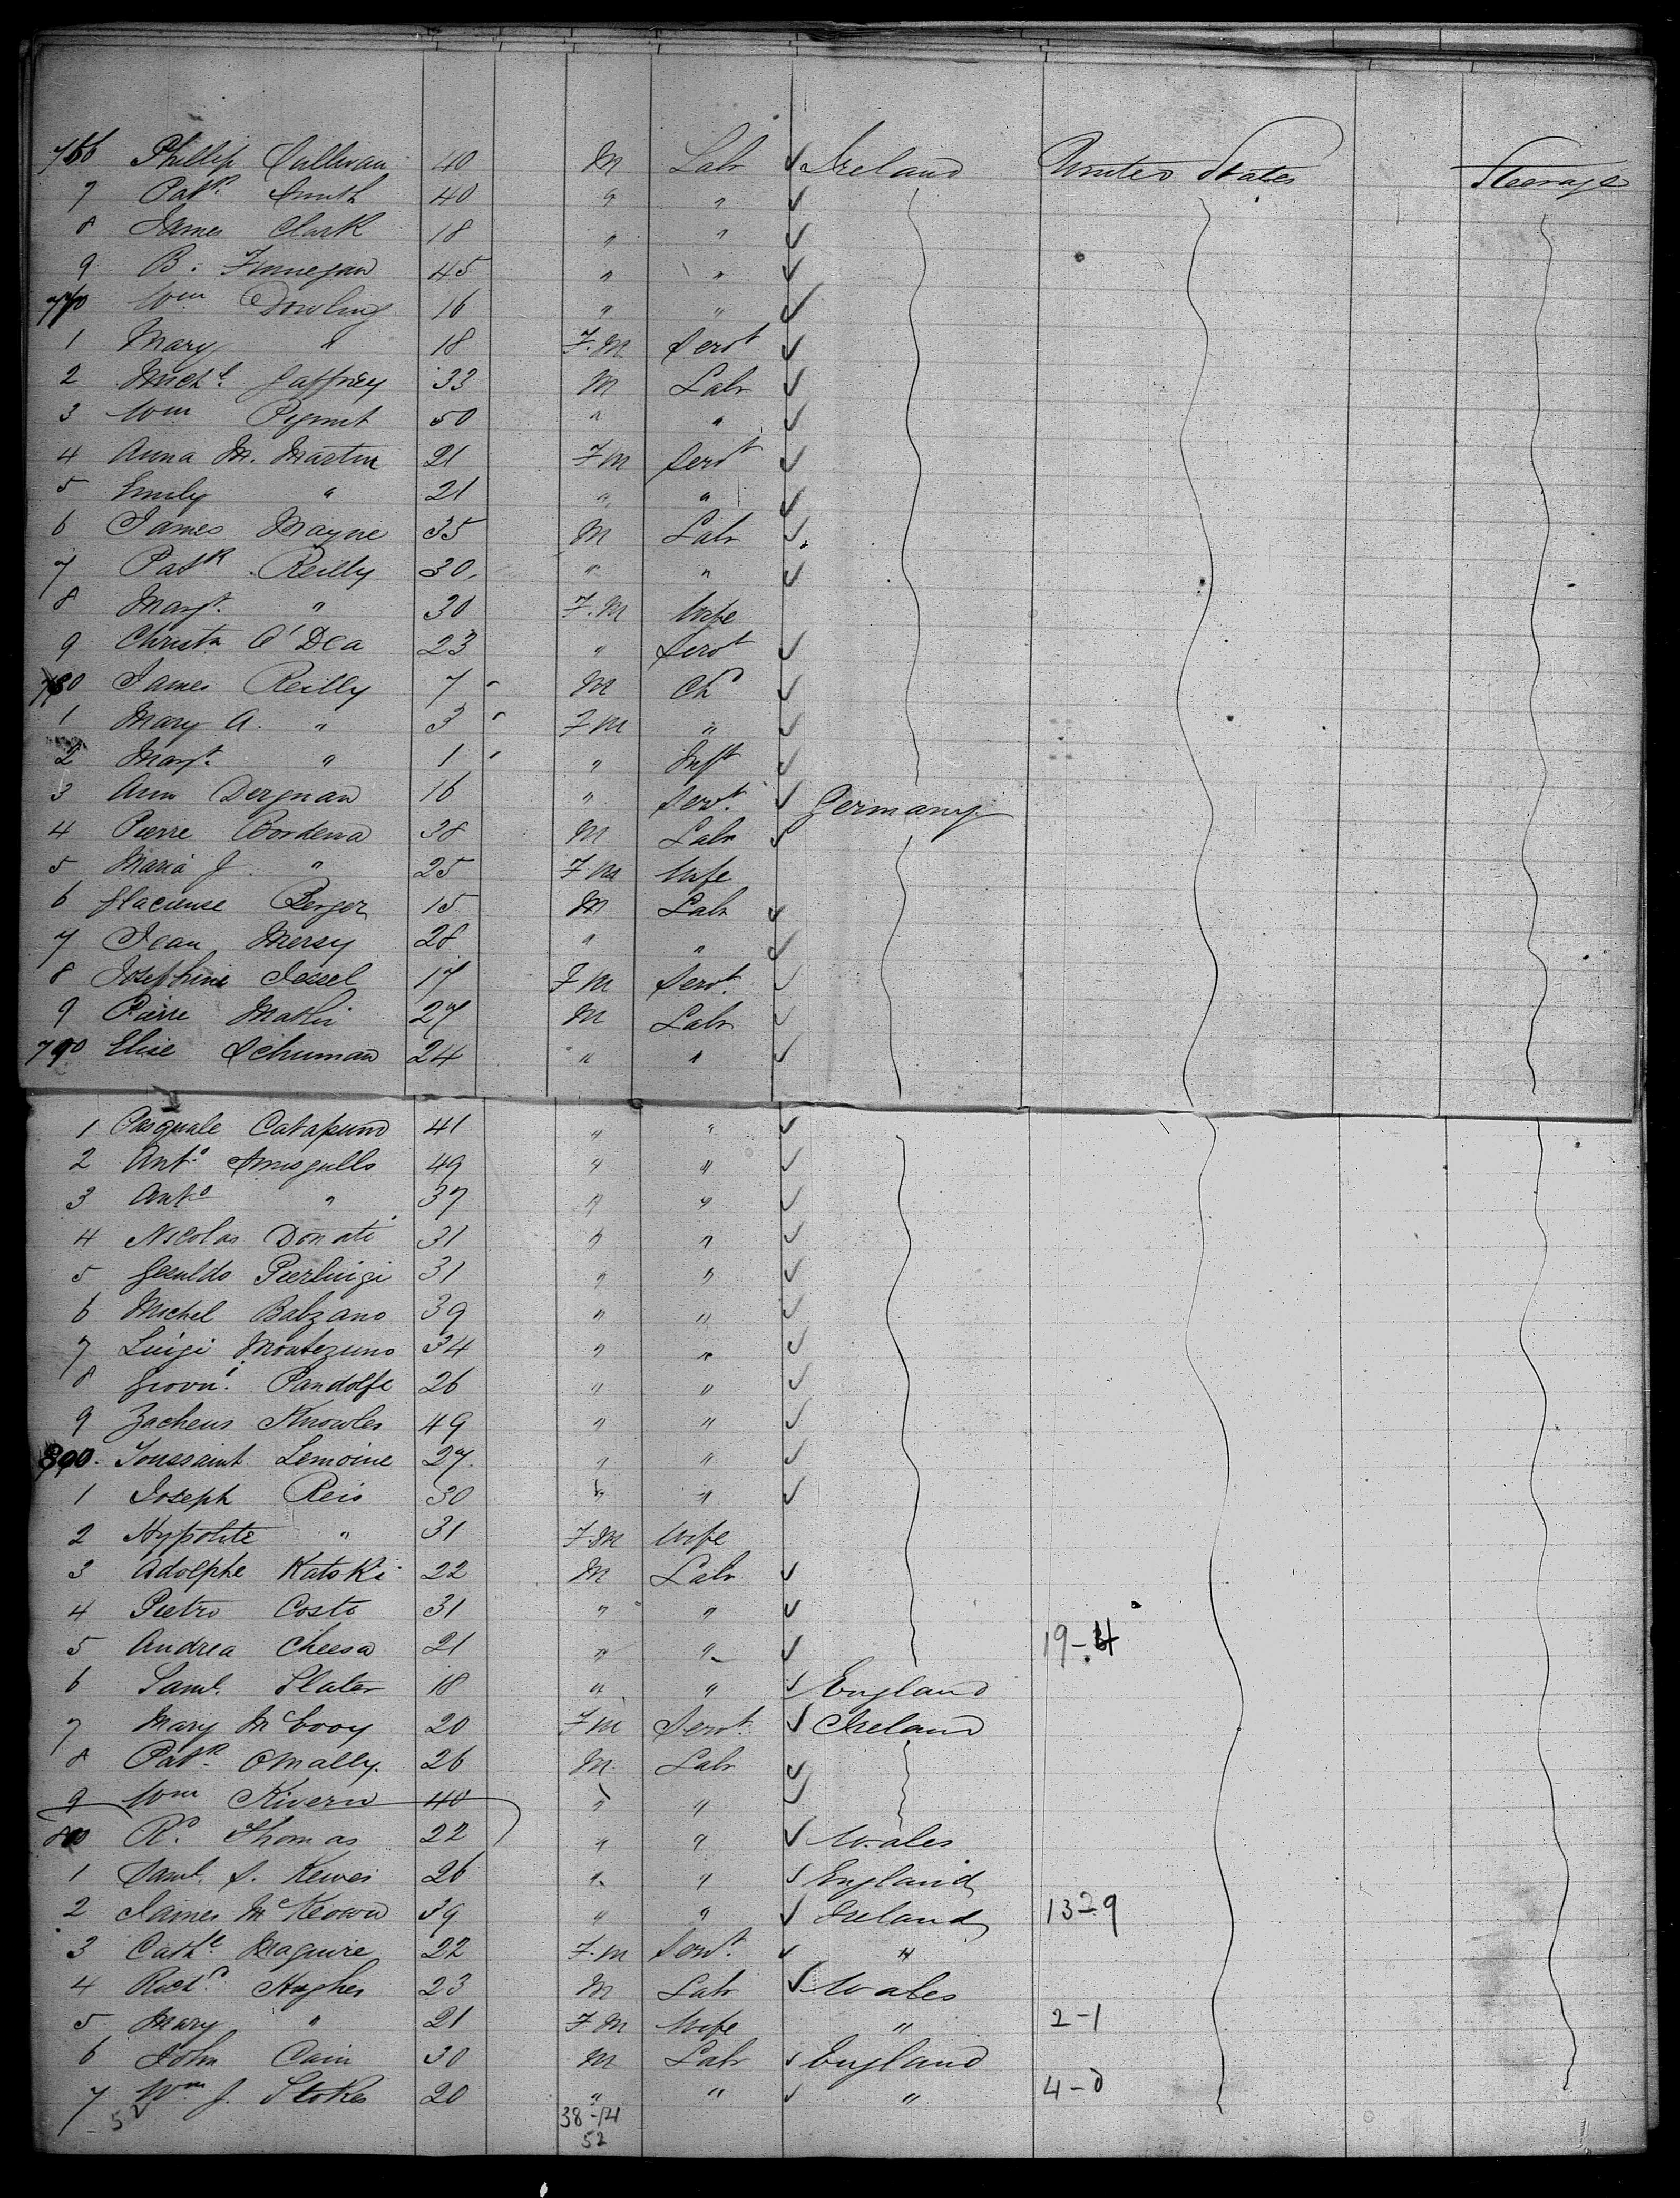 766 Phillip Sullivan 40 M Labr ✓ Ireland United States Steerage
7 Patk Smith 40 " " ✓
8 James Clark 18 " " ✓
9 B. Finnegan 45 " " ✓
770 Wm Dowling 16 " " ✓
1 Mary " 18 F.M Servt ✓
2 Michl Gaffney 33 M Labr ✓
3 Wm 50 " " ✓
4 Anna M. Martin 21 F M Servt ✓
5 Emily " 21 " " ✓
6 James Mayne 35 M Labr ✓
7 Patk Reilly 30 " " ✓
8 Margt " 30 F.M Wife
9 Christn O'Dea 23 " Servt ✓
780 James Reilly 7 M Chd ✓
1 Mary A. " 3 F M " ✓
2 Margt " 1 " Inft ✓
3 Ann Dergnan 16 " Servt ✓ Germany
4 Pierre Bordena 38 M Labr ✓
5 Maria J. " 25 F M Wife
6 Berger 15 M Labr ✓
7 Jean Mersy 28 " " ✓
8 Josephine Jessel 17 F M Servt ✓
9 Pierre Mathi 27 M Labr ✓
790 Elise Schuman 24 " " ✓
1 Pasquale Catapano 41 " " ✓
2 Anto 49 " " ✓
3 Anto " 37 " " ✓
4 Nicolas Donati 31 " " ✓
5 Gesuldo Pierluigi 31 " " ✓
6 Michel Balzano 39 " " ✓
7 Luigi Montezuno 34 " " ✓
8 Giovni Pandolfe 26 " " ✓
9 Zacheus Knowles 49 " " ✓
800 Toussaint Lemoine 27 " " ✓
1 Joseph Reis 30 " " ✓
2 Hypolite " 31 F M Wife
3 Adolphe Katski 22 M Labr ✓
4 Pietro Costo 31 " " ✓
5 Andrea Cheesa 21 " " ✓ 19-4
6 Saml Slater 18 " " ✓ England
7 Mary McEvoy 20 F M Servt ✓ Ireland
8 Patk OMally 26 M Labr ✓
9 Wm Kivern 40 " " ✓
810 Rd Thomas 22 " " ✓ Wales
1 Saml S. Kewei 26 " " ✓ England
2 James McKeown 39 " " ✓ Ireland 13-9
3 Cathe Maguire 22 F.M Servt ✓ "
4 Richd Hughes 23 M Labr ✓ Wales
5 Mary " 21 F M Wife " 2-1
6 John Cain 30 M Labr ✓ England
7 Wm J. Stokes 20 " " ✓ " 4-0
52 38-14
52